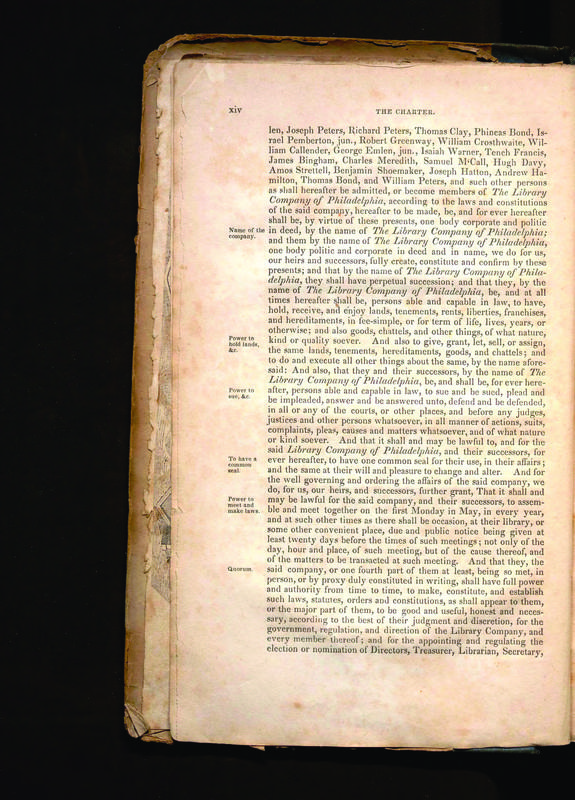 xiv
THE CHARTER.
len, Joseph Peters, Richard Peters, Thomas Clay, Phineas Bond, Is-
rael Pemberton, jun., Robert Greenway, William Crosthwaite, Wil-
liam Callender, George Emlen, jun., Isaiah Warner, Tench Francis,
James Bingham, Charles Meredith, Samuel M'Call, Hugh Davy,
Amos Strettell, Benjamin Shoemaker, Joseph Hatton, Andrew Ha-
milton, Thomas Bond, and William Peters, and such other persons
as shall hereafter be admitted, or become members of The Library
Company of Philadelphia, according to the laws and constitutions
of the said company, hereafter to be made, be, and for ever hereafter
shall be, by virtue of these presents, one body corporate and politic
Name of the
company.
in deed, by the name of The Library Company of Philadelphia;
and them by the name of The Library Company of Philadelphia,
one body politic and corporate in deed and in name, we do for us,
our heirs and successors, fully create, constitute and confirm by these
presents; and that by the name of The Library Company of Phila-
delphia, they shall have perpetual succession; and that they, by the
name of The Library Company of Philadelphia, be, and at all
times hereafter shall be, persons able and capable in law, to have,
hold, receive, and enjoy lands, tenements, rents, liberties, franchises,
and hereditaments, in fee-simple, or for term of life, lives, years, or
otherwise; and also goods, chattels, and other things, of what nature,
Power to
hold lands,
&c.
kind or quality soever. And also to give, grant, let, sell, or assign,
the same lands, tenements, hereditaments, goods, and chattels; and
to do and execute all other things about the same, by the name afore-
said: And also, that they and their successors, by the name of The
Library Company of Philadelphia, be, and shall be, for ever here-
Power to
sue, &c.
after, persons able and capable in law, to sue and be sued, plead and
be impleaded, answer and be answered unto, defend and be defended,
in all or any of the courts, or other places, and before any judges,
justices and other persons whatsoever, in all manner of actions, suits,
complaints, pleas, causes and matters whatsoever, and of what nature
or kind soever. And that it shall and may be lawful to, and for the
said Library Company of Philadelphia, and their successors, for
To have a
common
seal.
ever hereafter, to have one common seal for their use, in their affairs;
and the same at their will and pleasure to change and alter. And for
the well governing and ordering the affairs of the said company, we
do, for us, our heirs, and successors, further grant, That it shall and
Power to
meet and
make laws.
may be lawful for the said company, and their successors, to assem-
ble and meet together on the first Monday in May, in every year,
and at such other times as there shall be occasion, at their library, or
some other convenient place, due and public notice being given at
least twenty days before the times of such meetings; not only of the
day, hour and place, of such meeting, but of the cause thereof, and
of the matters to be transacted at such meeting. And that they, the
Quorum.
said company, or one fourth part of them at least, being so met, in
person, or by proxy duly constituted in writing, shall have full power
and authority from time to time, to make, constitute, and establish
such laws, statutes, orders and constitutions, as shall appear to them,
or the major part of them, to be good and useful, honest and neces-
sary, according to the best of their judgment and discretion, for the
government, regulation, and direction of the Library Company, and
every member thereof; and for the appointing and regulating the
election or nomination of Directors, Treasurer, Librarian, Secretary,